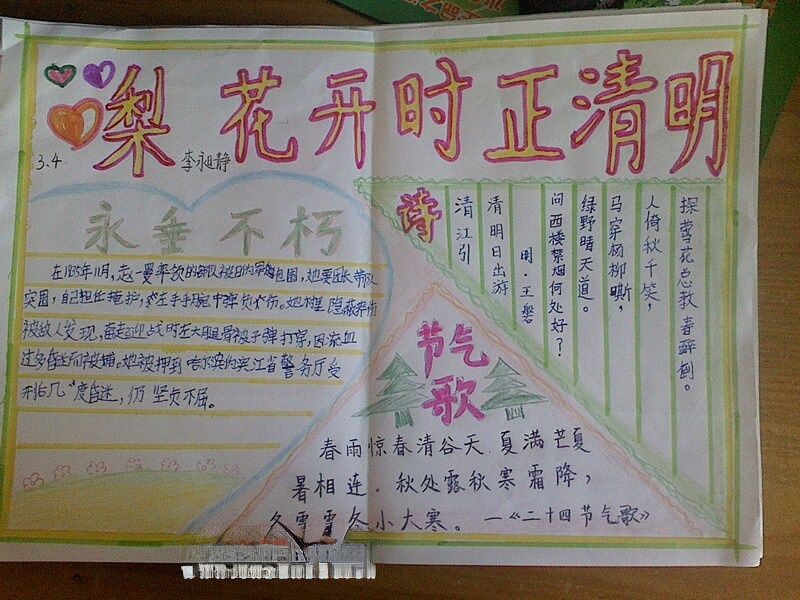 梨花开时正清明
3.4
李昶静
永垂不朽
在1935年11月,赵一曼率领的部队被日伪军包围,她要团长带队
突围,自己担任掩护,左手手腕中弹负伤。她在村里隐蔽养伤
被敌人发现,奋起迎战时左大腿骨被子弹打穿,因流血
过多昏迷而被捕。她被押到哈尔滨伪滨江省警务厅受
刑后几度昏迷,仍坚贞不屈。
诗
清江引
清明日出游
明·王磐
问西楼禁烟何处好?
绿野晴天道。
马穿杨柳嘶,
人倚秋千笑,
探莺花总教春醉倒。
节气
歌
春雨惊春清谷天,夏满芒夏
暑相连,秋处露秋寒霜降,
冬雪雪冬小大寒。—《二十四节气歌》